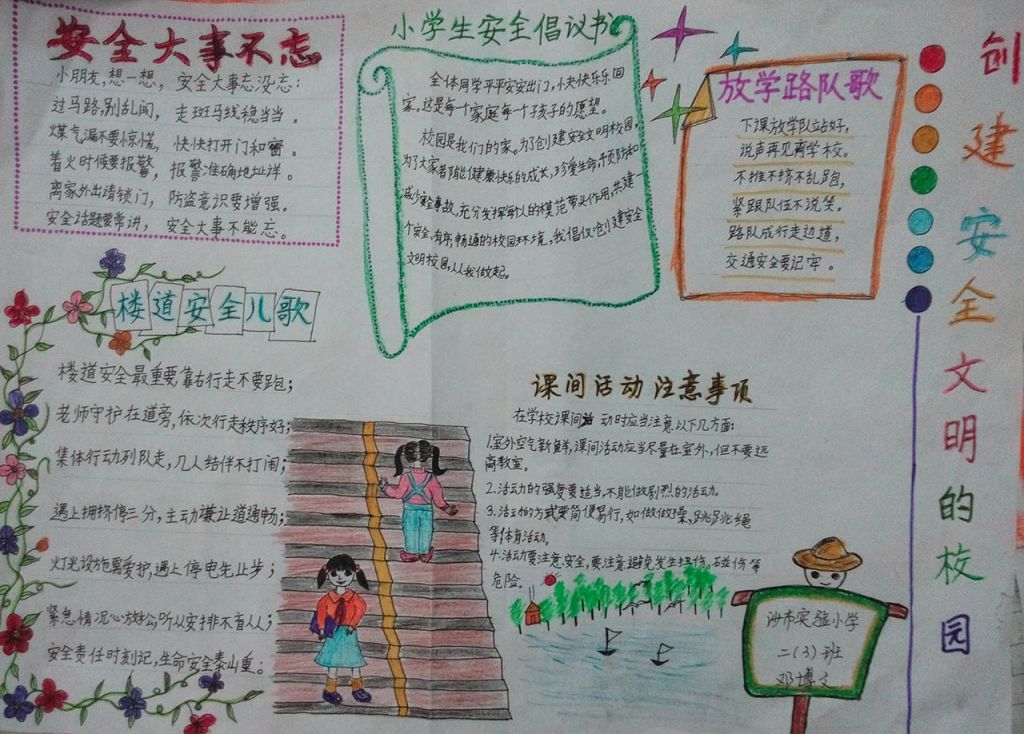 安全大事不忘
小朋友,想一想, 安全大事忘没忘:
过马路,别乱闯, 走斑马线稳当当。
煤气漏不要惊慌, 快快打开门和窗。
着火时候要报警, 报警准确地址详。
离家外出请锁门, 防盗意识要增强。
安全话题要常讲, 安全大事不能忘。
小学生安全倡议书
全体同学平平安安出门,快快乐乐回
家,这是每个家庭每个子孩子的愿望。
校园是我们的家。为了创建安全文明校园,
为了大家都能健康快乐的成长,珍爱生命,
减少安全事故,充分发挥每个人的模范带头作用,共建一
个安全、有序、畅通的校园环境,我倡仪:创建安全
文明校园,从我做起。
放学路队歌
下课放学队站好,
说声再见离学校。
不推不挤不乱跑,
紧跟队伍不说笑。
路队成行走边道,
交通安全要记牢。
创建安全文明的校园
楼道安全儿歌
楼道安全最重要,靠右行走不要跑;
老师守护在道旁,依次行走秩序好;
集体行动列队走,几人结伴不打闹;
遇上拥挤停三分,主动谦让道通畅;
灯光设施需爱护,遇上停电先止步;
紧急情况心放松,听从安排不盲从;
安全责任时刻记,生命安全泰山重。
课间活动注意事项
在学校课间活动时应当注意以下几方面:
1.室外空气新鲜,课间活动应当尽量在室外,但不要远
离教室。
2.活动的强度要适当,不能做剧烈的活动。
3.活动的方式要简便易行,如做做操,跳跳绳
等体育活动。
4.活动要注意安全,要注意避免发生扭伤、碰伤等
危险。
沙市实验小学
二(3)班
邓博文